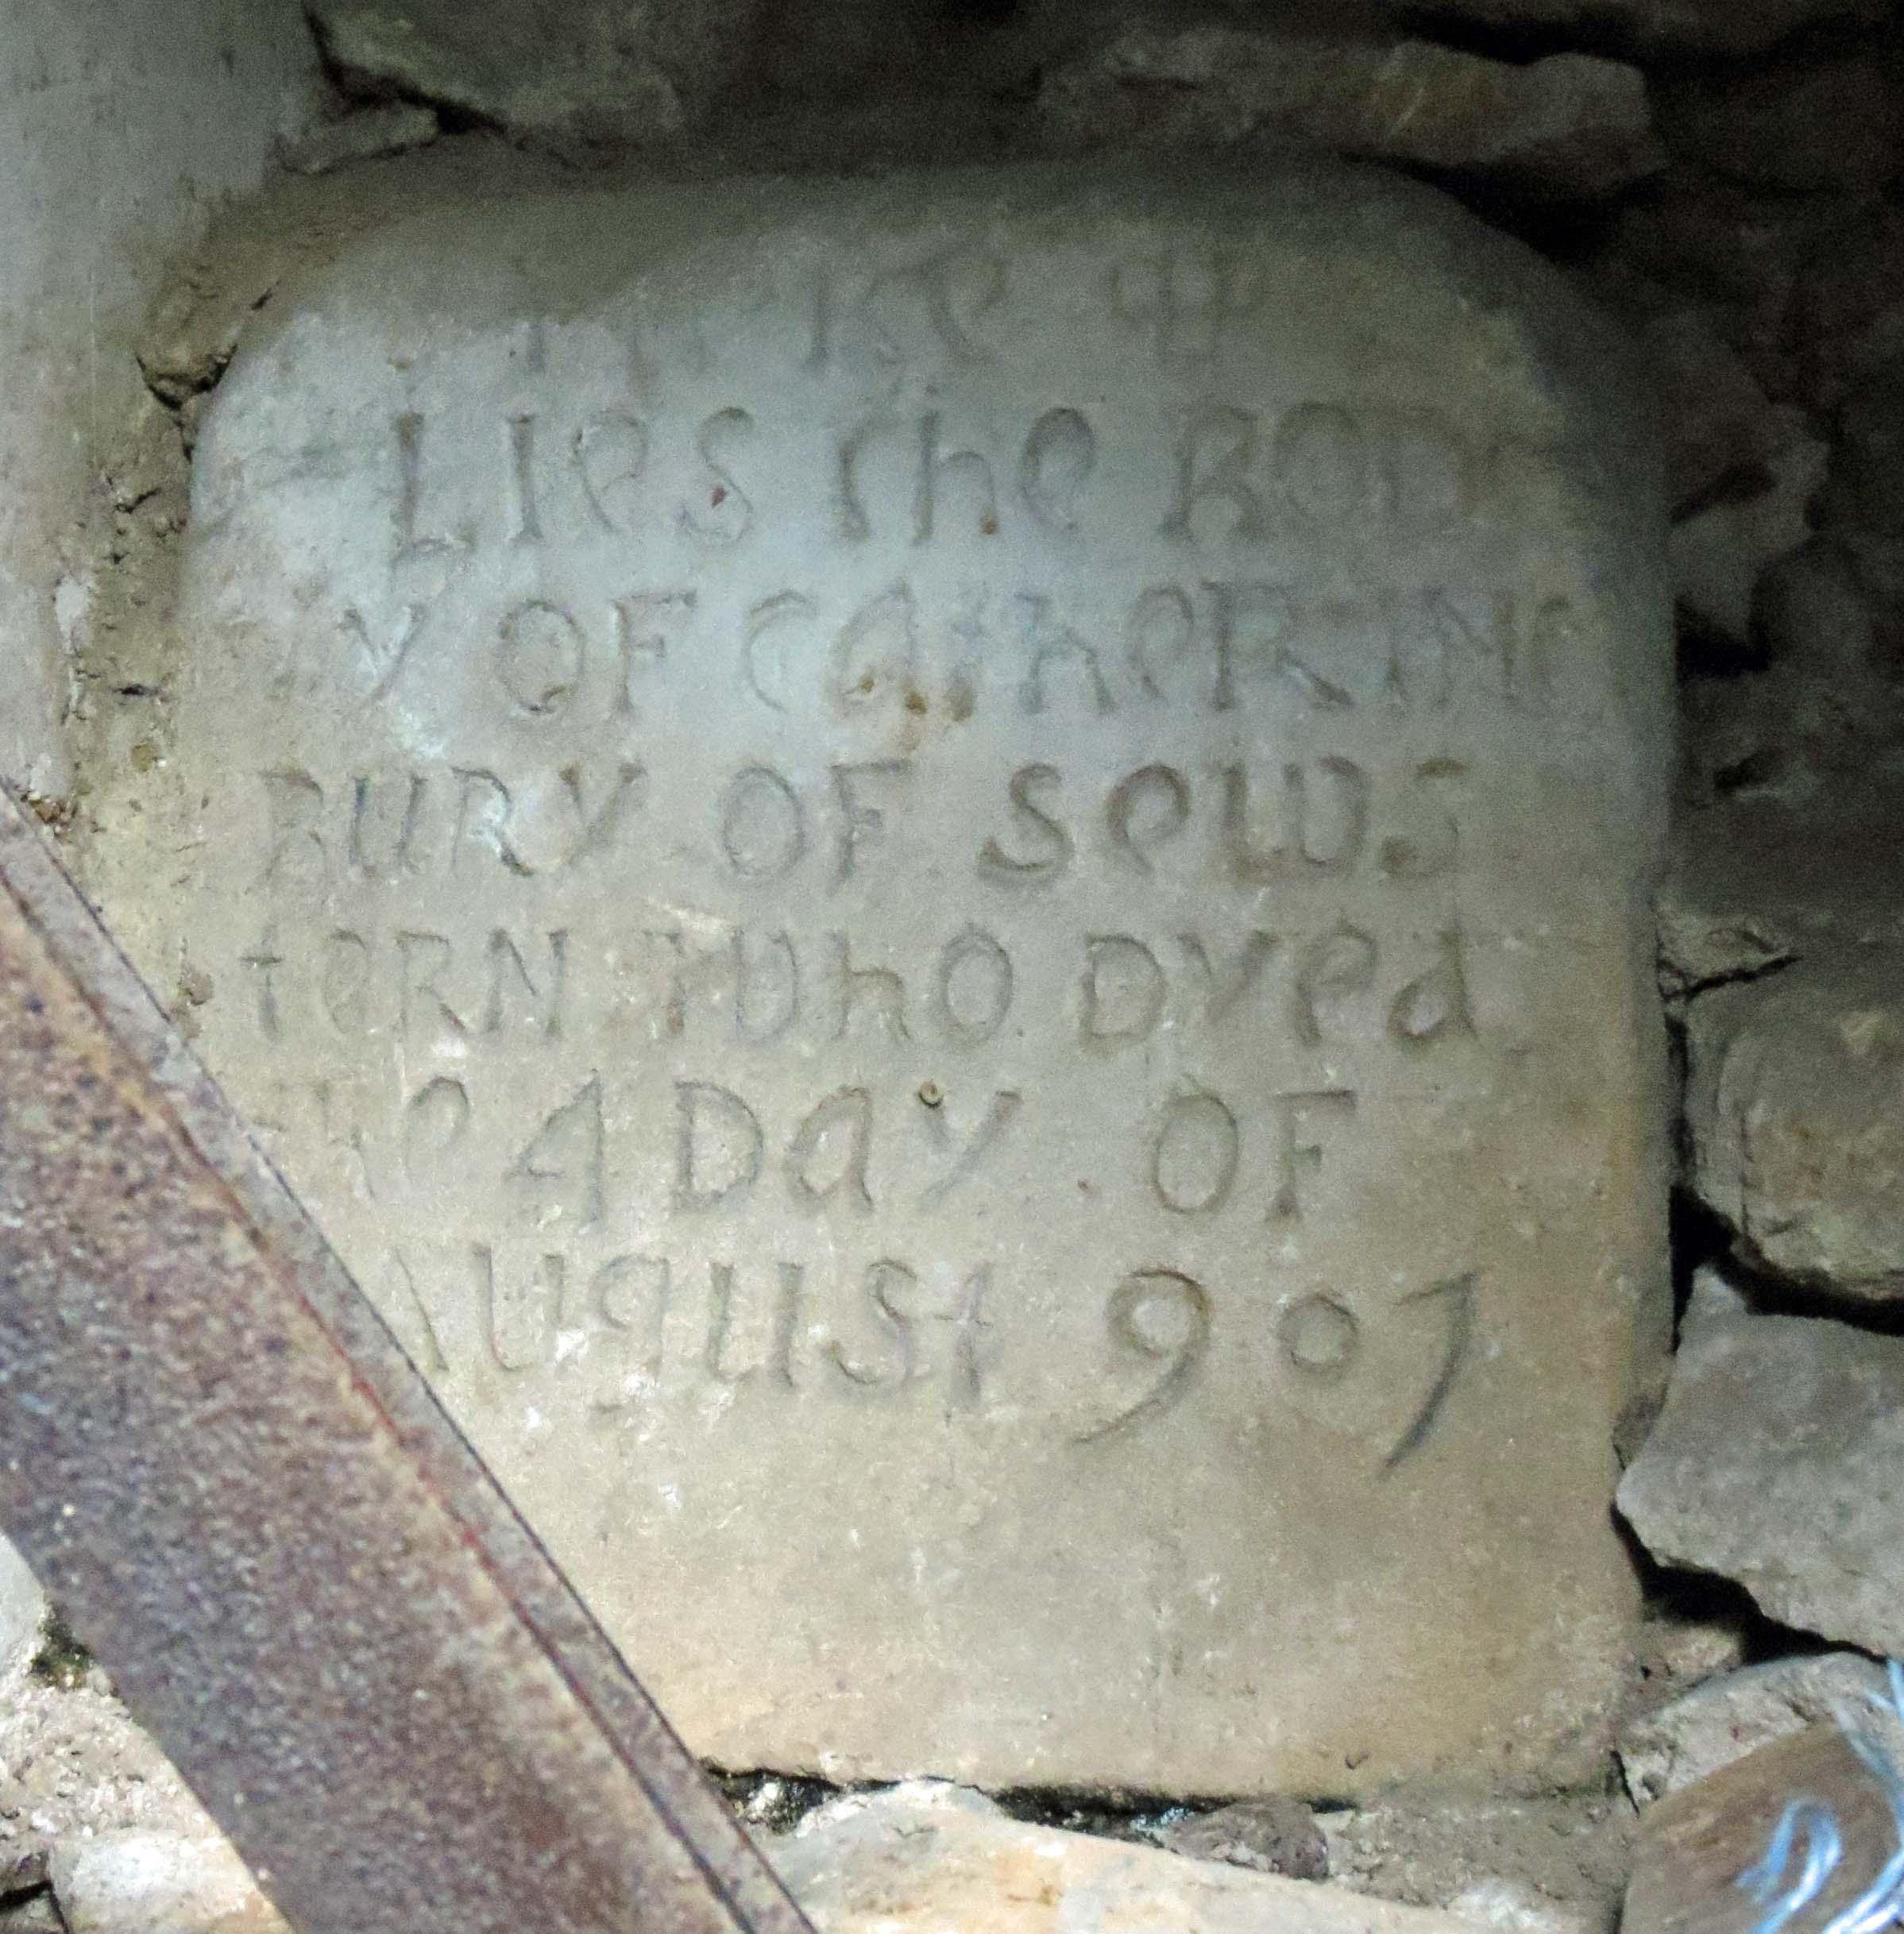 Lies the BOD
y OF CatheRINe
BURY OF SelWS
teRN WhO DYed
the 4 Day OF
AUgUSt 907